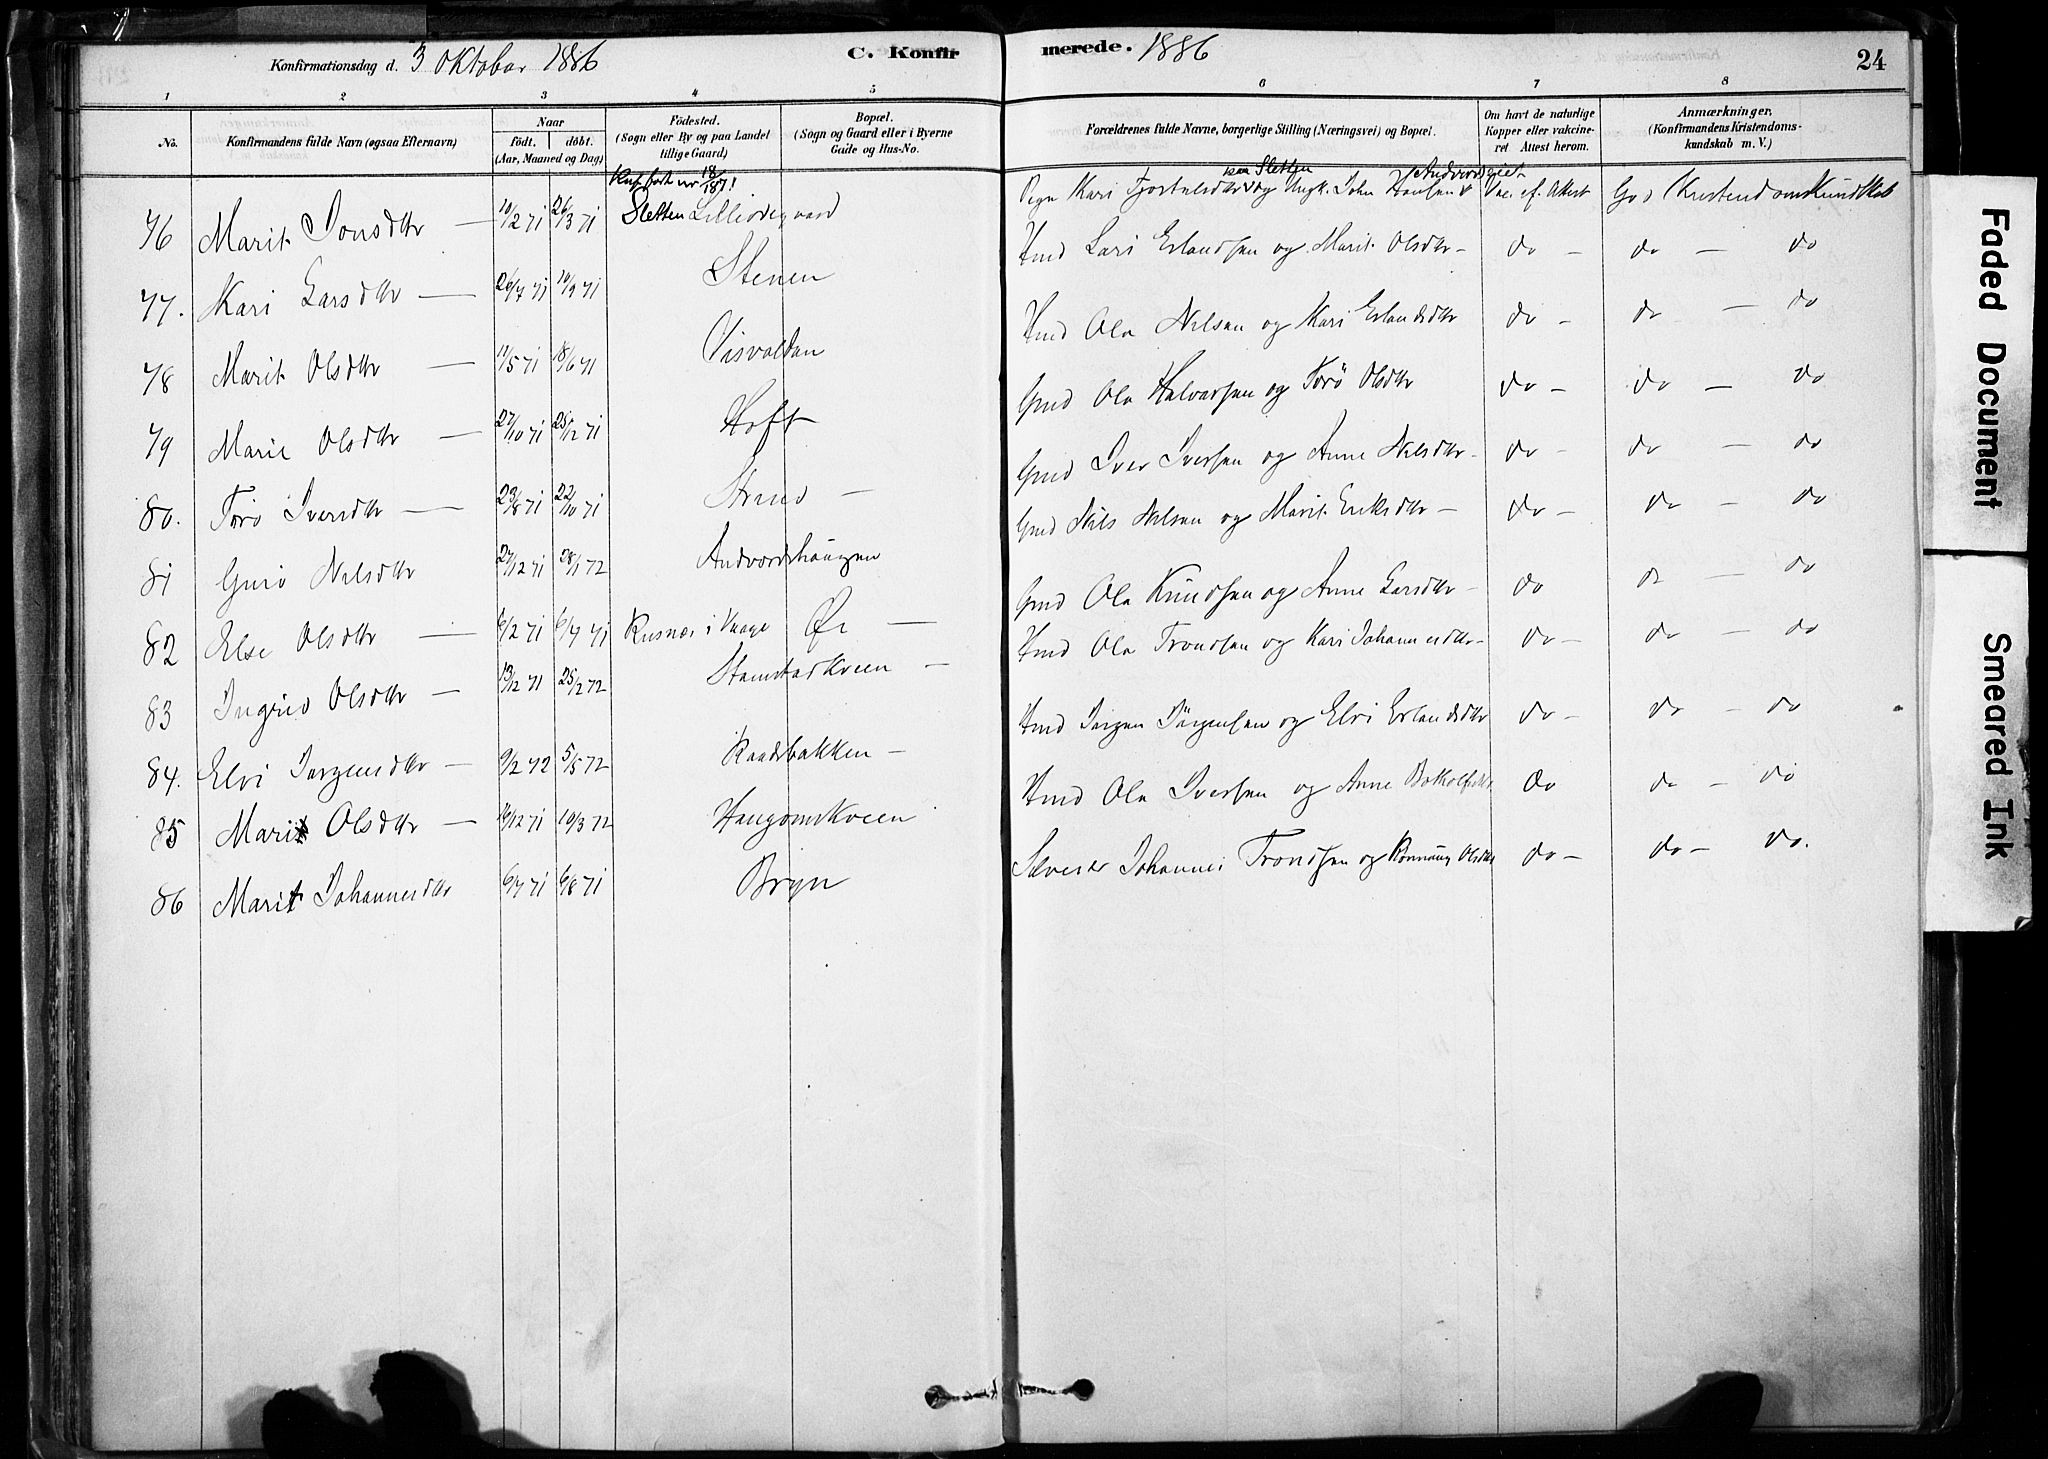 Konfirmationsdag d. 3 Oktober 1886 C. Konfirmerede. 1886 24
1 2 3 4 5 6 7 8
No. Konfirmandens fulde Navn (ogsaa Efternavn) Naar født. døbt. (Aar, Maaned og Dag) Fødested. (Sogn eller By og paa Landet tillige Gaard) Bopæl. (Sogn og Gaard eller i Byerne Gade og Hus-No. Forældrenes fulde Navne, borgerlige Stilling (Næringsvei) og Bopæl. Om havt de naturlige Kopper eller vakcineret Attest herom. Anmærkninger, (Konfirmandens Kristendomskundskab m. V.)
18/187!
Sletten
76 Marit Jonsdtr — 10/2 71 26/3 71 Sletten Lilliødegaard Pige Kari og Ungk. John Hansen Vac. ef. Attest God Kristendomskundskab
77. Kari Larsdtr — 26/7 71 10/9 71 Stenen Hmd Lars Erlandsen og Marit Olsdtr — do — do — do
78 Marit Olsdtr — 11/5 71 18/6 71 Visvoldan Hmd Ola Nilsen og Kari Erlandsdtr do — do — do
79 Marie Olsdtr — 27/10 71 25/12 71 Hoff Gmd Ola Halvorsen og Torø Olsdtr do — do — do
80. Torø Iversdtr — 23/8 71 22/10 71 Strand — Gmd Iver Iversen og Anne Nilsdtr — do — do — do
81 Guro Nilsdtr 27/12 71 28/1 72 Andvordshaugen Gmd Nils Nilsen og Marit Eriksdtr — do — do — do
82 Else Olsdtr — 6/2 71 6/7 71 Rusnes i Vaage Øi — Gmd Ola Knudsen og Anne Larsdtr — do do — do
83 Ingrid Olsdtr — 13/12 71 25/2 72 Stamstadkveen — Hmd Ola Trondsen og Kari Johannesdtr — do — do — do
84. Elvi Jørgensdtr — 9/2 72 5/5 72 Raadsbakken — Hmd Jørgen Jørgensen og Elvi Erlandsdtr do — do — do
85 Marit Olsdtr — 16/12 71 10/3 72 Haugomskveen Hmd Ola Iversen og Anne Botholfsdtr. do do — do
86 Marit Johannesdtr 6/7 71 6/8 71 Bryn Selveier Johannes Trondsen og Rønnaug Olsdtr do — do — do.
Faded Document
Smeared Ink